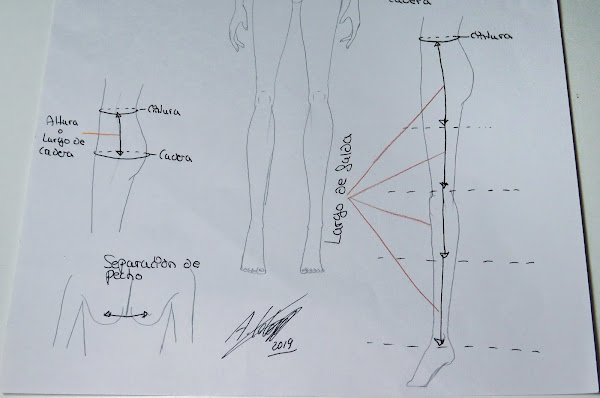 cadera
cintura
cintura
Altura
o
Largo de
cadera
cadera
Largo de falda
Separación de
pecho
2019